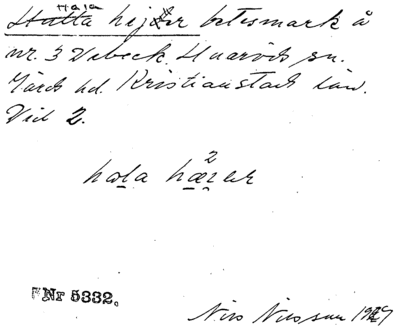 Hala
Hutta hejer betesmark å
nr. 3 Vebeck. Huaröds sn.
Gärds hd. Kristianstads län.
Vid 2.
2
hala hæzer
Nr 5332.
Nils Nilsson 1929